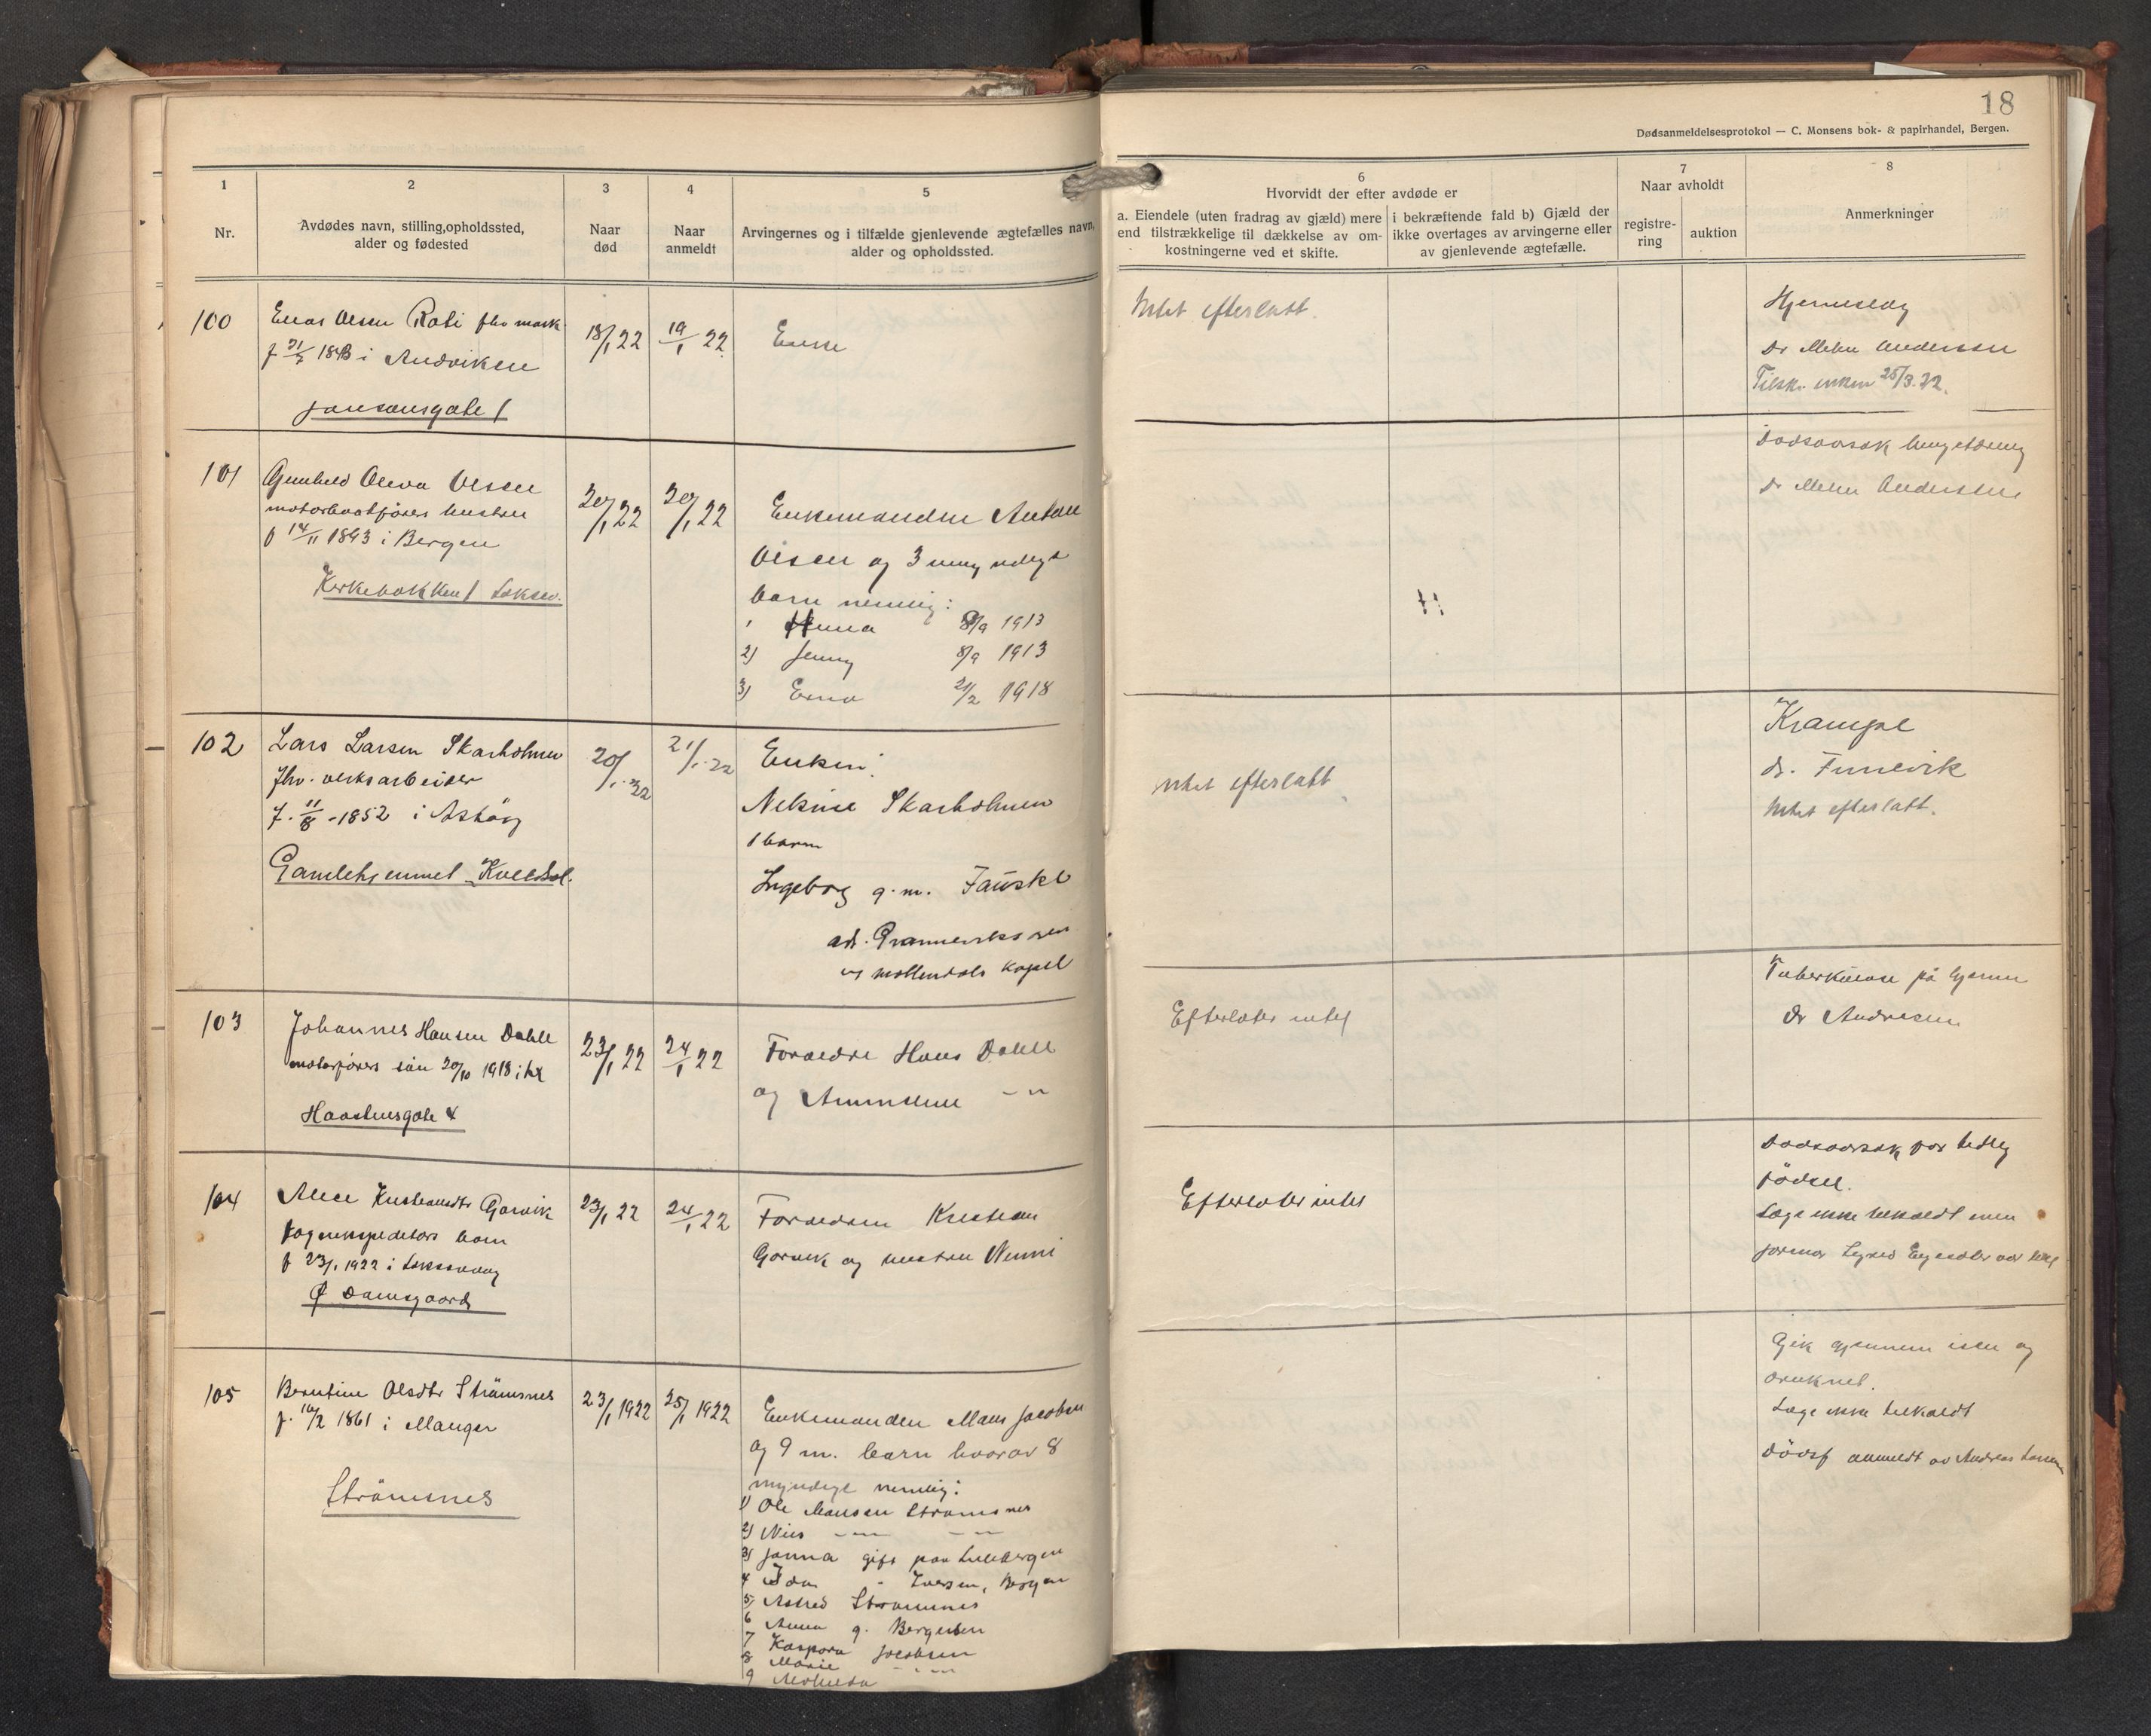 18
Dødsanmeldelsesprotokol — C. Monsens bok- & papirhandel, Bergen.
1
Nr.
2
Avdødes navn, stilling, opholdssted,
alder og fødested
3
Naar
død
4
Naar
anmeldt
5
Arvingernes og i tilfælde gjenlevende ægtefælles navn,
alder og opholdssted.
6
Hvorvidt der efter avdøde er
a. Eiendele (uten fradrag av gjæld) mere
end tilstrækkelige til dækkelse av om-
kostningerne ved et skifte.
i bekræftende fald b) Gjæld der
ikke overtages av arvingerne eller
av gjenlevende ægtefælle.
7
Naar avholdt
registre-
ring
auktion
8
Anmerkninger
100
Olsen Rabi fhv mask
f 21/7 1843 i Andviken
Jansonsgate 1
18/1 22
19/1 22
Enke
Intet efterlatt.
Hjerneslag
Dr Meher Anderssen
Tilskr. enken 25/3.22.
101
Gunhild Oliva Olsen
motorbaatførers hustru
f 14/11 1893 i Bergen
Kirkebakken 1 Laksev.
20/1 22
20/1 22
Enkemanden Anton
Olsen og 3 umyndige
barn nemlig:
1 Anna 8/9 1913
2) Jenny 8/9 1913
3) Erna 21/2 1918
Dødsaarsak
Dr Meher Anderssen
102
Lars Larsen Skarholmen
Fhv. verksarbeider
f. 11/8 - 1852 i Askøy
Gamlehjemmet
20/1.22
21/1.22
Enken:
Nekine Skarholmen
1 barn
Ingeborg g.m. Fauske
adr.
v/ Møllendals kapel
Intet efterlatt
Krampe
dr. Finnevik
Intet efterlatt.
103
Johannes Hansen Dahle
motorførers søn 20/10 1918 i
Haastensgate 4
23/1 22
24/1 22
Forældre Hans Dahle
og
Efterlater intet
Tuberkulose på hjernen
Dr Andresen
104
Alice Kristiansdtr Garvik
f 23/1 1922 i Laksevaag
Ø Damsgaard
23/1 22
24/1 22
Forældrene Kristian
Garvik og hustru Nenni
Efterlater intet
Dødsaarsak var tidlig
fødsel.
Læge ikke tilkaldt men
105
Berntine Olsdtr Strømsnes
f. 16/2 1861 i Manger
Strømsnes
23/1 1922
25/1 1922
Enkemanden Mons Jacobsen
og 9 m. barn hvorav 8
myndige nemlig:
1) Ole Monsen Strømsnes
2) Nils — „ — — „ —
3) Janna gift paa Lillebergen
4 Ida „ Iversen, Bergen
5) Astrid Strømsnes
6 Anna g. Bergesen
7 Kaspara Jacobsen
8 Marie — „ —
9
Gik gjennem isen og
druknet.
Læge ikke tilkaldt
Dødsf anmeldt av Andreas Larsen